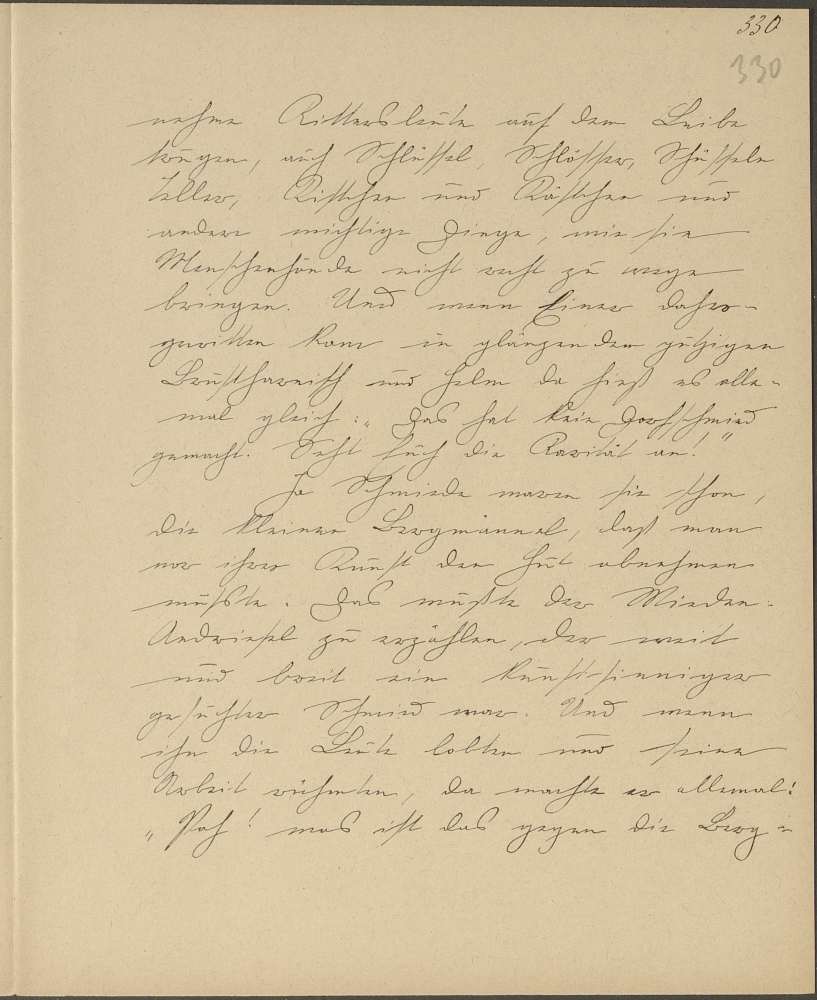 330
330
nehme Rittersleute auf dem Leibe
trugen, auch Schlüssel, Schlösser, Schüsseln
Teller, Kistchen und Kästchen und
andere wichtige Dinge, wie sie
Menschenhände nicht recht zu wege
bringen. Und wenn Einer daher-
geritten kam in glänzenden
Brustharnisch und Helm da hieß es alle-
mal gleich: „Das hat kein Dorfschmied
gemacht. Seht Euch die Rarität an!"
Ja Schmiede waren sie schon,
die kleinen Bergmannel, daß man
vor ihrer Kunst den Hut abnehmen
mußste. Das wußte der Wieden-
Andriesel zu erzählen, der weit
und breit ein kunst-sinniger
gesuchter Schmied war. Und wenn
ihn die Leute lobten und seine
Arbeit rühmten, da machte er allemal:
„Pah! was ist das gegen die Berg-